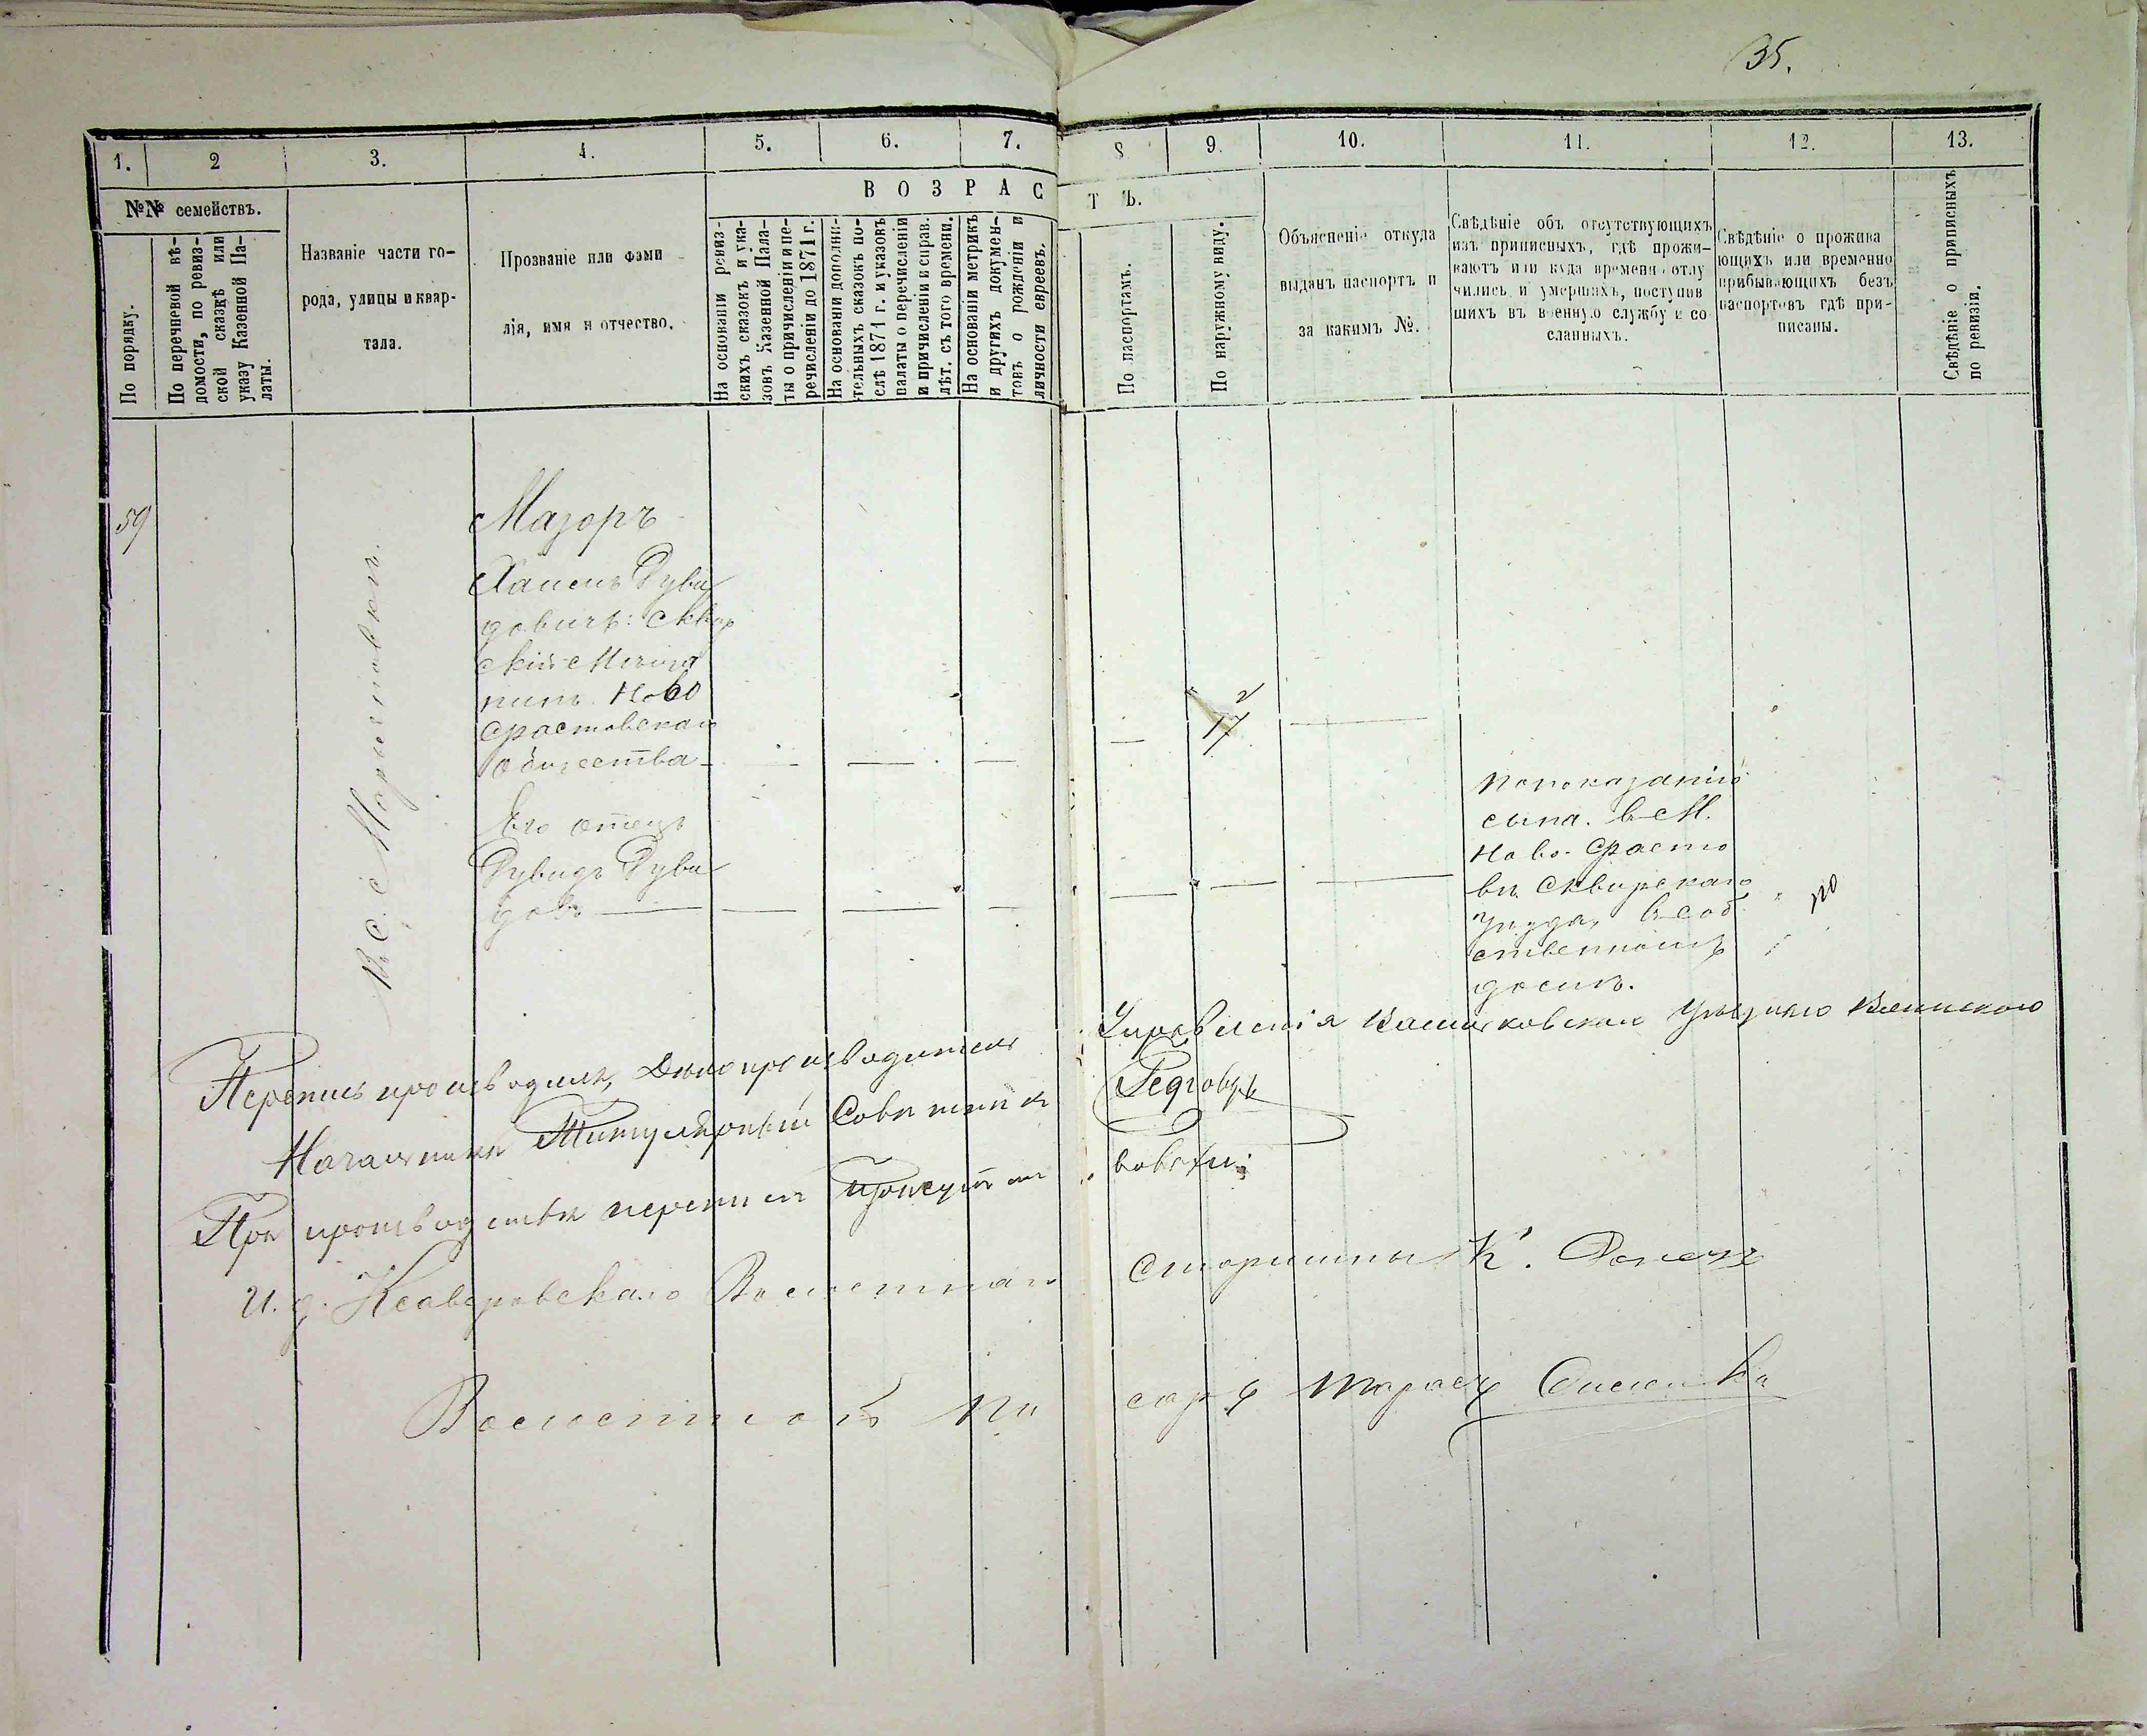 35.
1. 2 3. 4. 5. 6. 7. 8 9. 10. 11. 12. 13.
В О З Р А С Т Ъ.
№№ семействъ.
По порядку.
По перечневой вѣ-
домости, по ревиз-
ской сказкѣ или
указу Казенной Па-
латы.
Названіе части го-
рода, улицы и квар-
тала.
Прозваніе или фами
лія, имя и отчество.
На основаніи ревиз-
скихъ сказокъ и ука-
зовъ Казенной Пала-
ты о причисленіи и пе-
речисленіи до 1871 г.
На основаніи дополни-
тельныхъ сказокъ по-
слѣ 1871 г. и указовъ
палаты о перечисленіи
и причисленіи и справ.
лѣт. съ того времени.
На основаніи метрикъ
и другихъ докумен-
товъ о рожденіи и
личности евреевъ.
По паспортамъ.
По наружному виду.
Объясненіе откуда
выданъ паспортъ и
за какимъ №.
Свѣдѣніе объ отсутствующихъ
изъ приписныхъ, гдѣ прожи-
ваютъ или куда времени отлу
чились и умершихъ, поступив
шихъ въ военную службу и со
сланныхъ.
Свѣдѣніе о прожива
ющихъ или временно
прибывающихъ безъ
паспортовъ гдѣ при-
писаны.
Свѣдѣніе о приписныхъ
по ревизіи.
59
Мазоръ
Рува
довичъ: Сквир
скій Мѣща
нинъ Ново
Фастовскаго
Общества
17
Его отецъ
Рувидъ Руви
довъ
По показанію
сына. в М.
Ново-Фасто
вѣ Сквирскаго
Уѣзда, в соб
ственномъ
домѣ.
Перепись производилъ, Дѣлопроизводитель Управленія Васильковскаго Уѣзднаго Воинскаго
Начальника Титулярный Совѣтникъ
При производствѣ переписи
И. д. Ксаверовскаго Волостнаго Старшины К.
Волостной Писарь Тарасъ